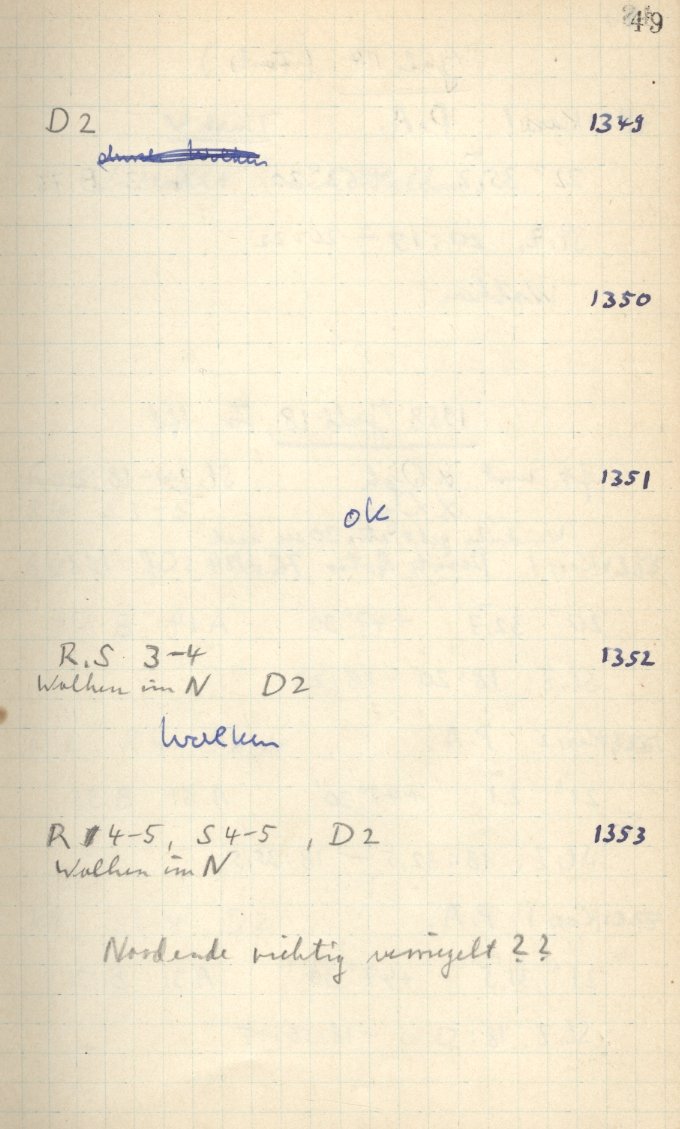 49
D2 1349
1350
1351
ok
R, S 3-4 1352
Wolken im N D2
Wolken
R 4-5, S 4-5, D2 1353
Wolken im N
Nordende richtig verriegelt ??